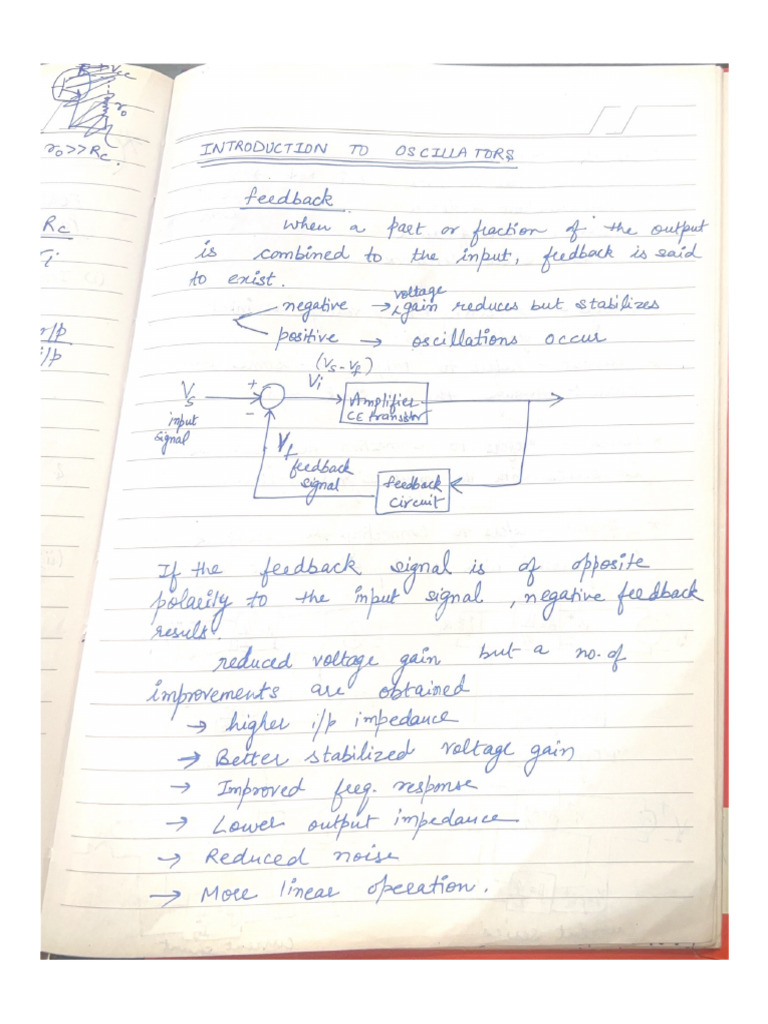 R → Vcc
r₀
r₀>>Rc.
Rc
r/p
i/p
INTRODUCTION TO OSCILLATORS
feedback
When a part or fraction of the output
is combined to the input, feedback is said
to exist.
negative → voltage gain reduces but stabilizes
positive → oscillations occur
(Vs - Vf)
Vs + Vi Amplifier
input - CE transstor
signal Vf
feedback feedback
signal circuit
If the feedback signal is of opposite
polarity to the input signal, negative feedback
result.
reduced voltage gain but a no. of
improvements are obtained
→ higher i/p impedance
→ Better stabilized voltage gain
→ Improved freq. response
→ Lower output impedance
→ Reduced noise
→ More linear operation.